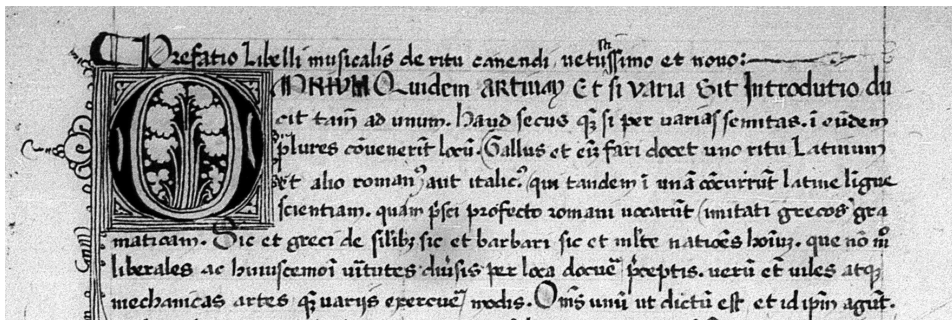 Prefatio Libelli musicalis de ritu canendi vetustissimo et novo:
OMNIUM Quidem ARTIUM Et si varia Sit Introdutio du
cit tamē ad unum. haud secus qȝ si per varias semitas. ī eūdem
plures cōvenerīt locū. Gallus et eī fari docet uno ritu Latinum
et alio romanꝰ aut italicꝰ qui tandem ī unā cōcurrūt latine līgue
scientiam. quam pͥsci profecto romani vocarūt (imitati grecos) gra
maticam. Sic et greci de silibȝ sic et barbari sic et ml̄te natiōēs hoīuȝ. que nō mͦ
liberales ac huiuscemōi v̄itutes diūsis per loca docuē p̄ceptis. verū et viles atqȝ
mechanicas artes qȝ varijs exercuē modis. Om̄s unū ut dictū est et id ip̄m agūt.